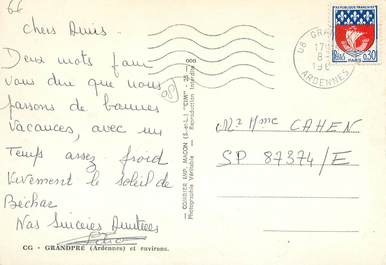 66
Chers Amis.
Deux mots pour
vous dire que nous
passons de bonnes
vacances, avec un
Temps assez froid
vivement le soleil de
Bechar
Nos Sincères Amitiées
CG - GRANDPRÉ (Ardennes) et environs.
COMBIER IMP. MACON (S.-et-L.) "CIM"
Photographie Véritable - Reproduction Interdite
REPUBLIQUE FRANÇAISE
0,30
PARIS
08 GRAN
ARDENNES
Mr et Mme CAHEN
SP 87374/E